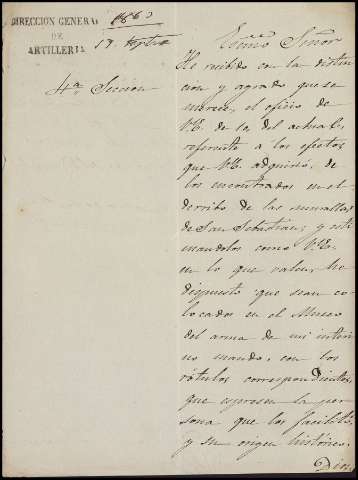 DIRECCION GENERAL
DE
ARTILLERIA
4ª Sección
Excmo Señor
He recibido con la distin
cion y agrado que se
merece, el oficio de
V.E. de 10 del actual,
referente a los efectos
que V.E. adquirió, de
los encontrados en el
derribo de las murallas
de San Sebastian; y esti
mandolos como V.E.
en lo que valen, he
dispuesto que sean co
locados en el Museo
del arma de mi interi
no mando, con los
rótulos correspondientes,
que espresen la per
sona que los facilitó
y su origen histórico.
Dios